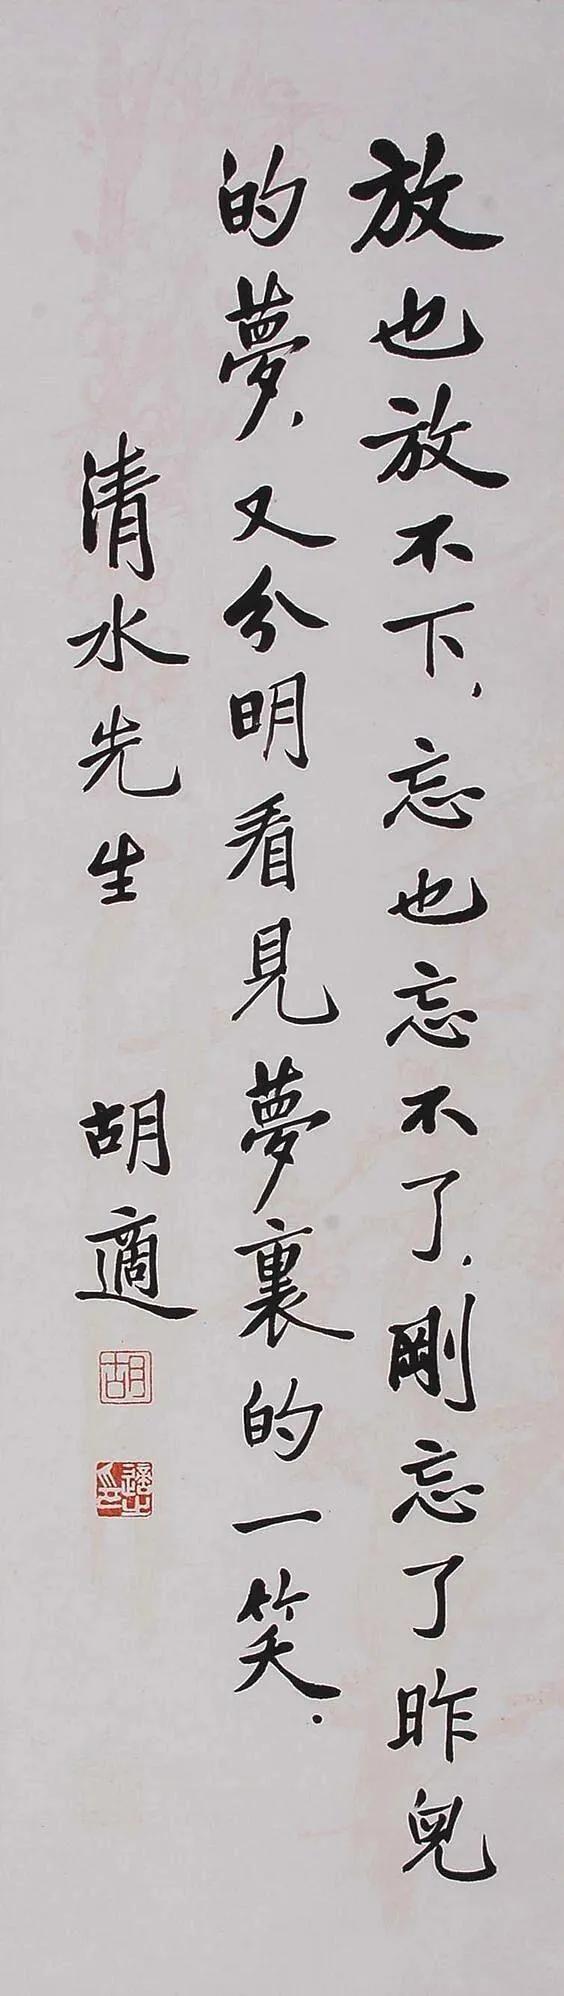 放也放不下，忘也忘不了，剛忘了昨兒
的夢，又分明看見夢裏的一笑．
清水先生　胡適
胡
適之